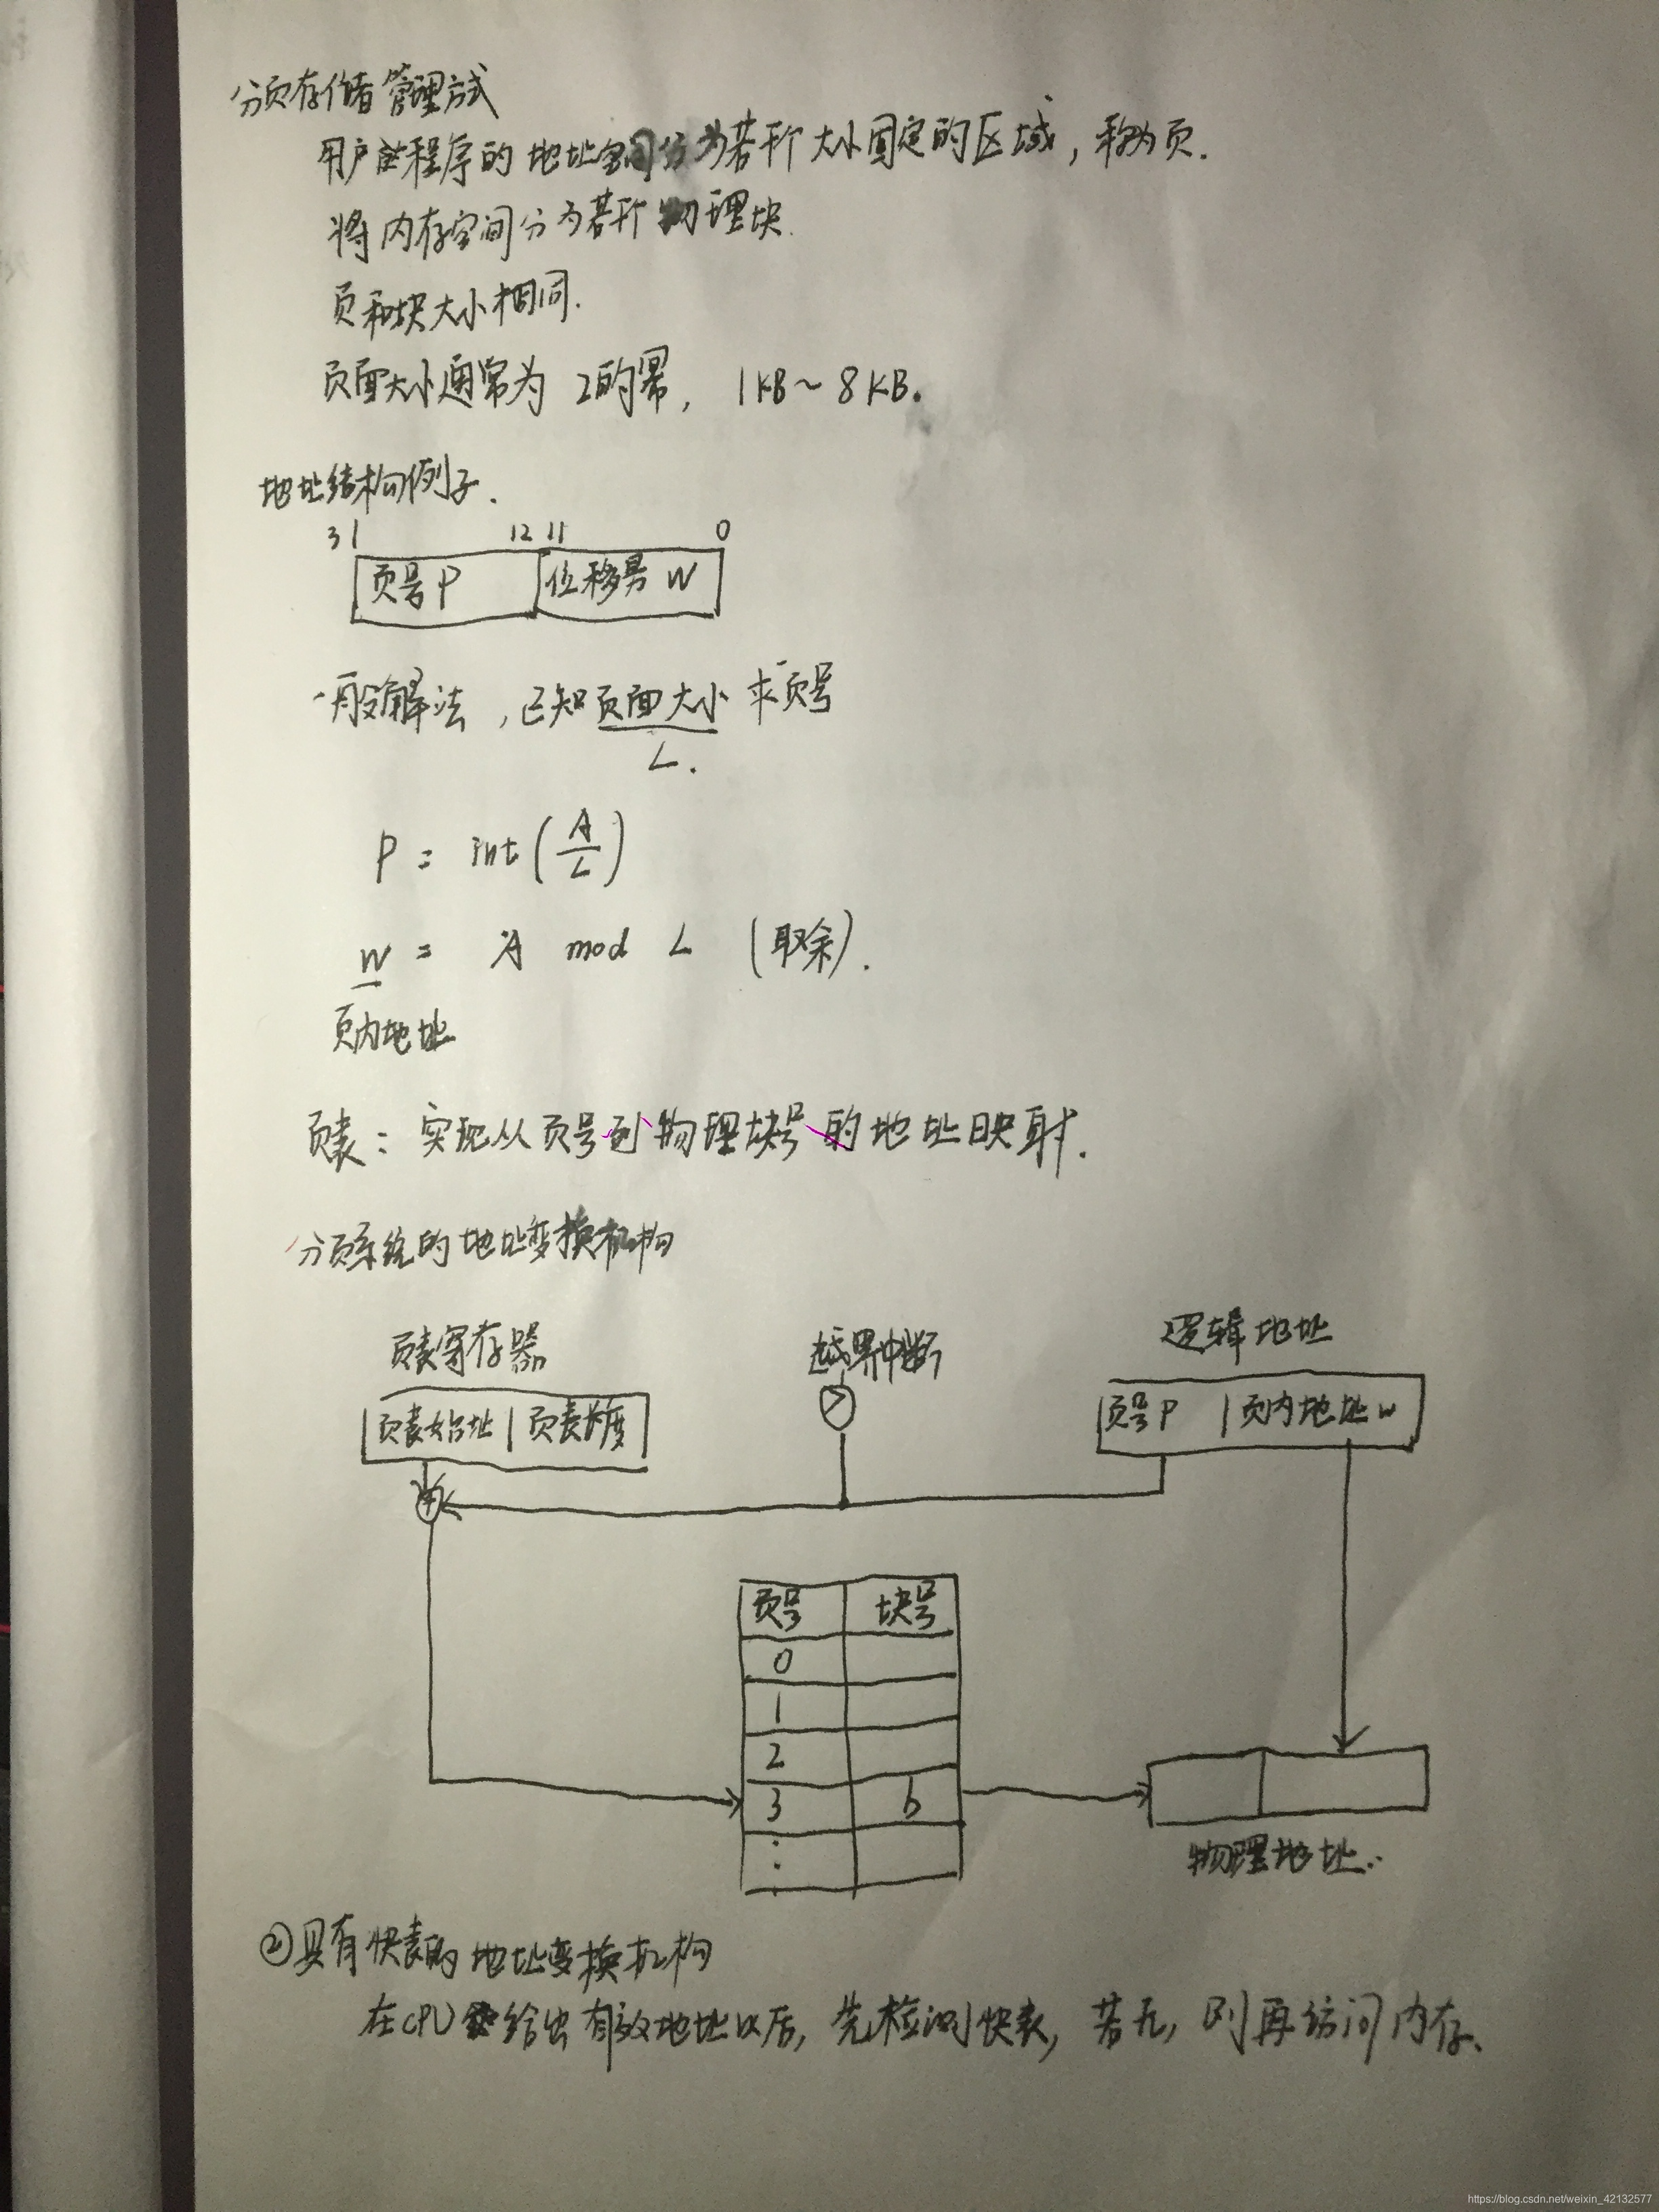 分页存储管理方式
用户程序的地址空间分为若干个大小固定的区域,称为页.
将内存空间分为若干个物理块.
页和块大小相同.
页面大小通常为2的幂, 1KB~8KB.
地址结构例子.
31 12 11 0
页号P 位移量W
一般解法,已知页面大小求页号
L.
P = int(A/L)
W = A mod L (取余).
页内地址
页表: 实现从页号到物理块号的地址映射.
分页系统的地址变换机构
页表寄存器 越界中断 逻辑地址
页表始址 页表长度 > 页号P 页内地址w
+
页号 块号
0
1
2
3 b
⋮
物理地址.
②具有快表的地址变换机构
在CPU给出有效地址以后,先检测快表,若无,则再访问内存.
https://blog.csdn.net/weixin_42132577